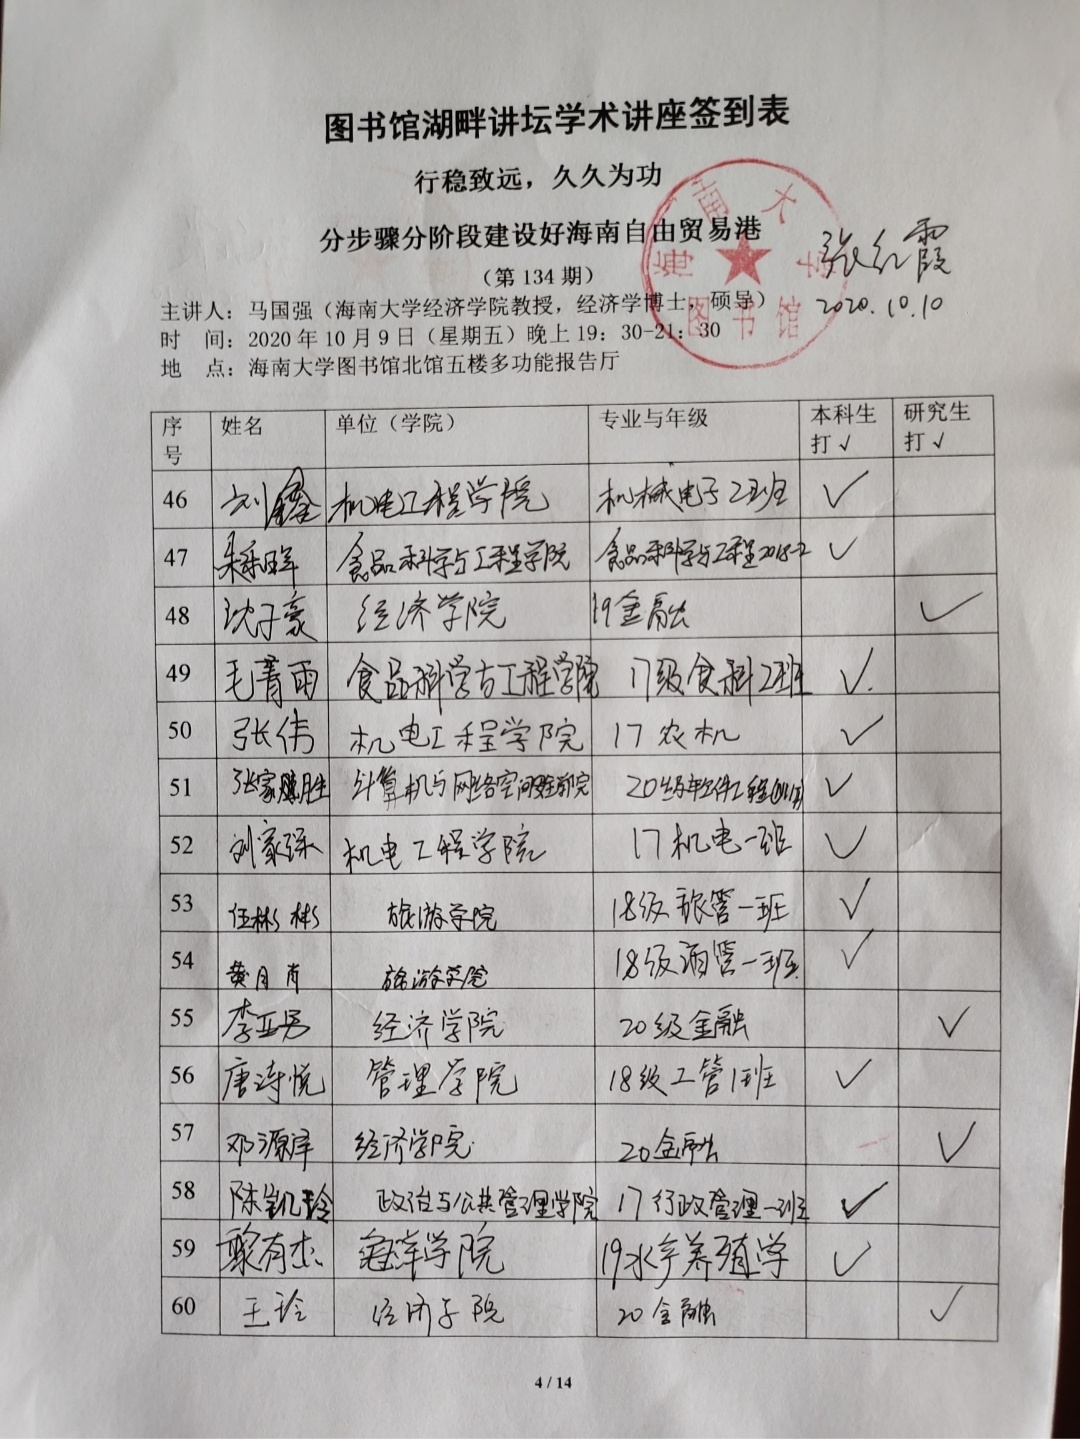 图书馆湖畔讲坛学术讲座签到表
行稳致远，久久为功
分步骤分阶段建设好海南自由贸易港
（第 134 期）
海南大学
图书馆
张红霞
2020.10.10
主讲人：马国强（海南大学经济学院教授，经济学博士，硕导）
时 间：2020 年 10 月 9 日（星期五）晚上 19：30-21：30
地 点：海南大学图书馆北馆五楼多功能报告厅
序号 姓名 单位（学院） 专业与年级 本科生打√ 研究生打√
46 刘鑫 机电工程学院 机械电子2班 √
47 食品科学与工程学院 食品科学与工程2018-2 √
48 沈子豪 经济学院 19金融 √
49 毛菁雨 食品科学与工程学院 17级食科2班 √
50 张伟 机电工程学院 17农机 √
51 张家 胜 计算机与网络空间 学院 20级软件工程 √
52 刘家琛 机电工程学院 17机电一班 √
53 伍彬彬 旅游学院 18级旅管一班 √
54 黄月 旅游学院 18级酒管一班 √
55 李亚男 经济学院 20级金融 √
56 唐诗悦 管理学院 18级工管1班 √
57 邓源泽 经济学院 20金融 √
58 陈凯玲 政治与公共管理学院 17行政管理一班 √
59 黎有杰 海洋学院 19水产养殖学 √
60 王玲 经济学院 20金融 √
4 / 14